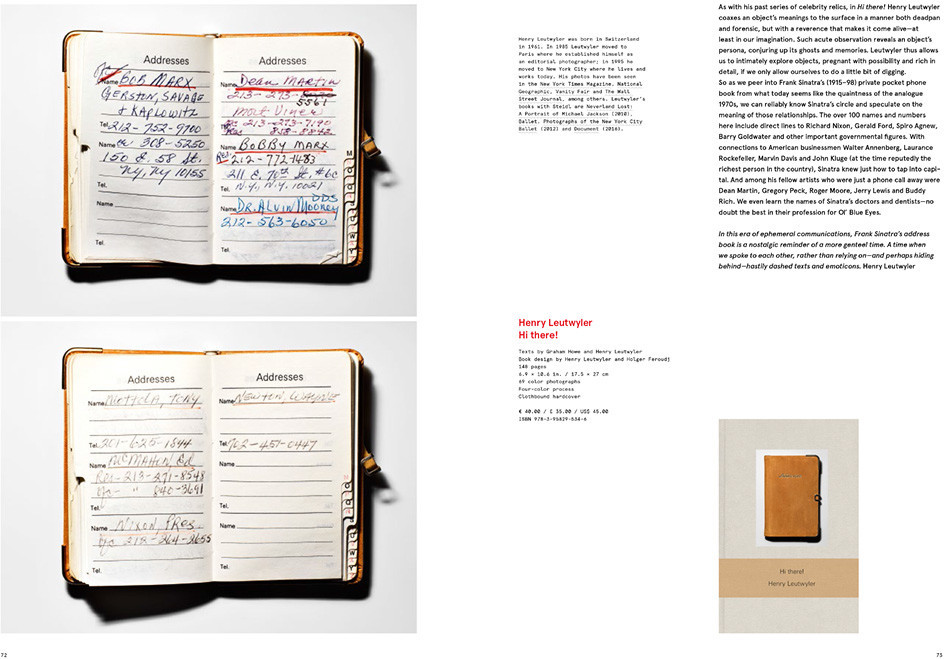 Addresses
Name BOB MARX
GERSTON, SAVAGE
& KAPLOWITZ
Tel. 212-752-9700
Name 308-5250
150 E. 58 St.
NY, NY 10155
Tel.
Name
Tel.
Addresses
Name Dean MARTIN
213-273-
5561
Tel. Res 213-273-7190
858-8842
Name BOBBY MARX
Res 212-772-1483
211 E. 70th St. #6C
Tel. N.Y., N.Y. 10021
DDS
Name DR. ALVIN MOOREY
212-563-6050
Tel.
Addresses
Name MOTTOLA, TONY
Tel. 201-625-1844
Name McMAHON, Ed
Res-213-271-8548
840-3641
Tel.
Name NIXON, PRES.
212-264-2655
Tel.
Addresses
Name NEWTON, WAYNE
Tel. 702-451-0447
Name
Tel.
Name
Tel.
72
Henry Leutwyler was born in Switzerland
in 1961. In 1985 Leutwyler moved to
Paris where he established himself as
an editorial photographer; in 1995 he
moved to New York City where he lives and
works today. His photos have been seen
in the New York Times Magazine, National
Geographic, Vanity Fair and The Wall
Street Journal, among others. Leutwyler's
books with Steidl are Neverland Lost:
A Portrait of Michael Jackson (2010),
Ballet. Photographs of the New York City
Ballet (2012) and Document (2016).
Henry Leutwyler
Hi there!
Texts by Graham Howe and Henry Leutwyler
Book design by Henry Leutwyler and Holger Feroudj
148 pages
6.9 × 10.6 in. / 17.5 × 27 cm
69 color photographs
Four-color process
Clothbound hardcover
€ 40.00 / £ 35.00 / US$ 45.00
ISBN 978-3-95829-534-6
As with his past series of celebrity relics, in Hi there! Henry Leutwyler
coaxes an object's meanings to the surface in a manner both deadpan
and forensic, but with a reverence that makes it come alive—at
least in our imagination. Such acute observation reveals an object's
persona, conjuring up its ghosts and memories. Leutwyler thus allows
us to intimately explore objects, pregnant with possibility and rich in
detail, if we only allow ourselves to do a little bit of digging.
So as we peer into Frank Sinatra's (1915–98) private pocket phone
book from what today seems like the quaintness of the analogue
1970s, we can reliably know Sinatra's circle and speculate on the
meaning of those relationships. The over 100 names and numbers
here include direct lines to Richard Nixon, Gerald Ford, Spiro Agnew,
Barry Goldwater and other important governmental figures. With
connections to American businessmen Walter Annenberg, Laurance
Rockefeller, Marvin Davis and John Kluge (at the time reputedly the
richest person in the country), Sinatra knew just how to tap into capi-
tal. And among his fellow artists who were just a phone call away were
Dean Martin, Gregory Peck, Roger Moore, Jerry Lewis and Buddy
Rich. We even learn the names of Sinatra's doctors and dentists—no
doubt the best in their profession for Ol' Blue Eyes.
In this era of ephemeral communications, Frank Sinatra's address
book is a nostalgic reminder of a more genteel time. A time when
we spoke to each other, rather than relying on—and perhaps hiding
behind—hastily dashed texts and emoticons. Henry Leutwyler
Hi there!
Henry Leutwyler
73